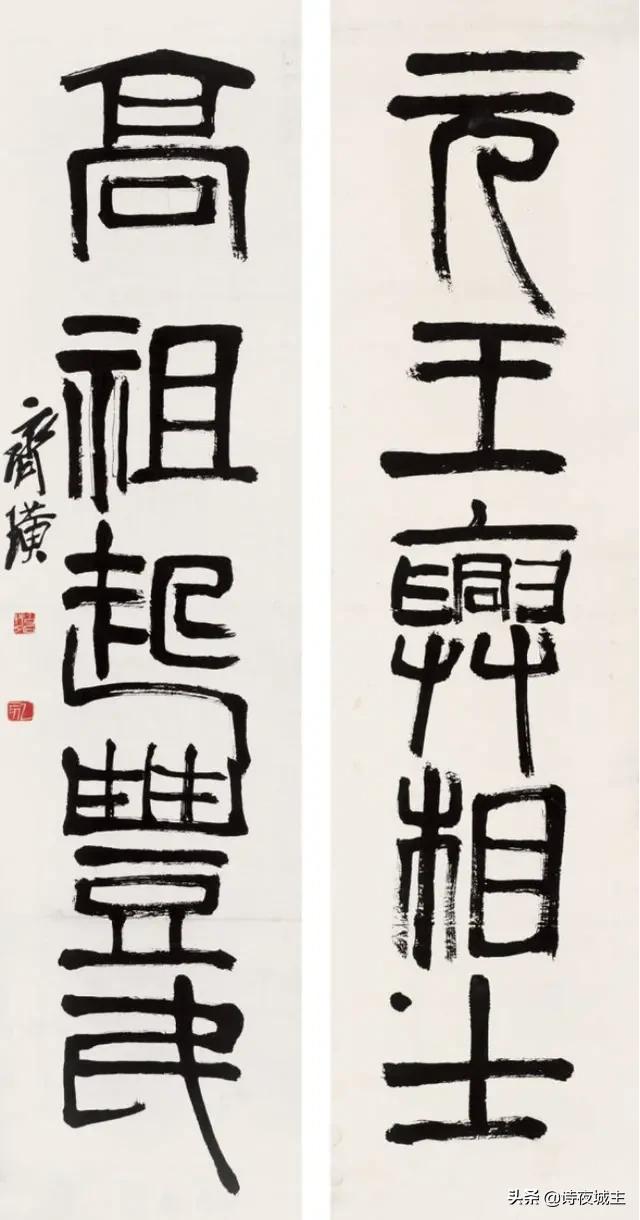 元王興相士
高祖起豐民
齊璜
头条 @诗夜城主